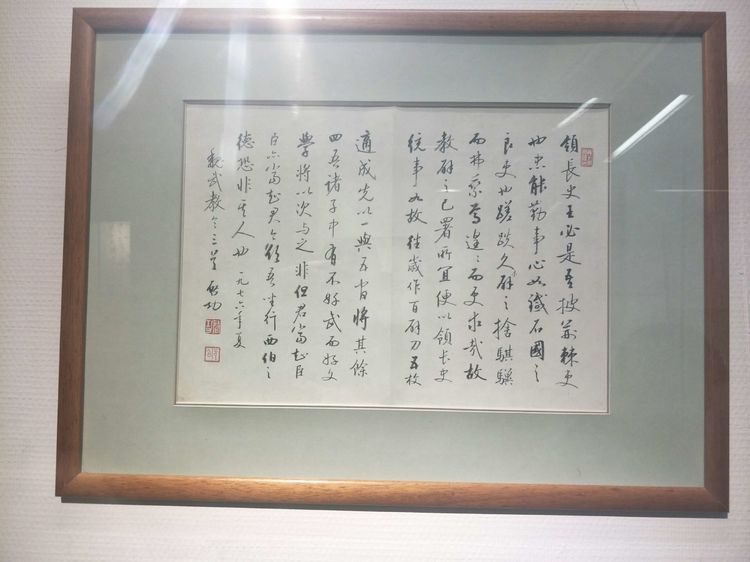 領長史王必是吾披荊棘吏
也忠能勤事心如鐵石國之
良吏也蹉跌久辟之捨騏驥
而弗乘焉遑遑而更求哉故
教辟之已署所宜便以領長史
統事如故往歲作百辟刀五枚
適成先以一與五官將其餘
四吾諸子中有不好武而好文
學將以次與之非但君當知臣
臣亦當知君今欲吾坐行西伯之
德恐非其人也一九七六年夏
魏武教令三首啟功